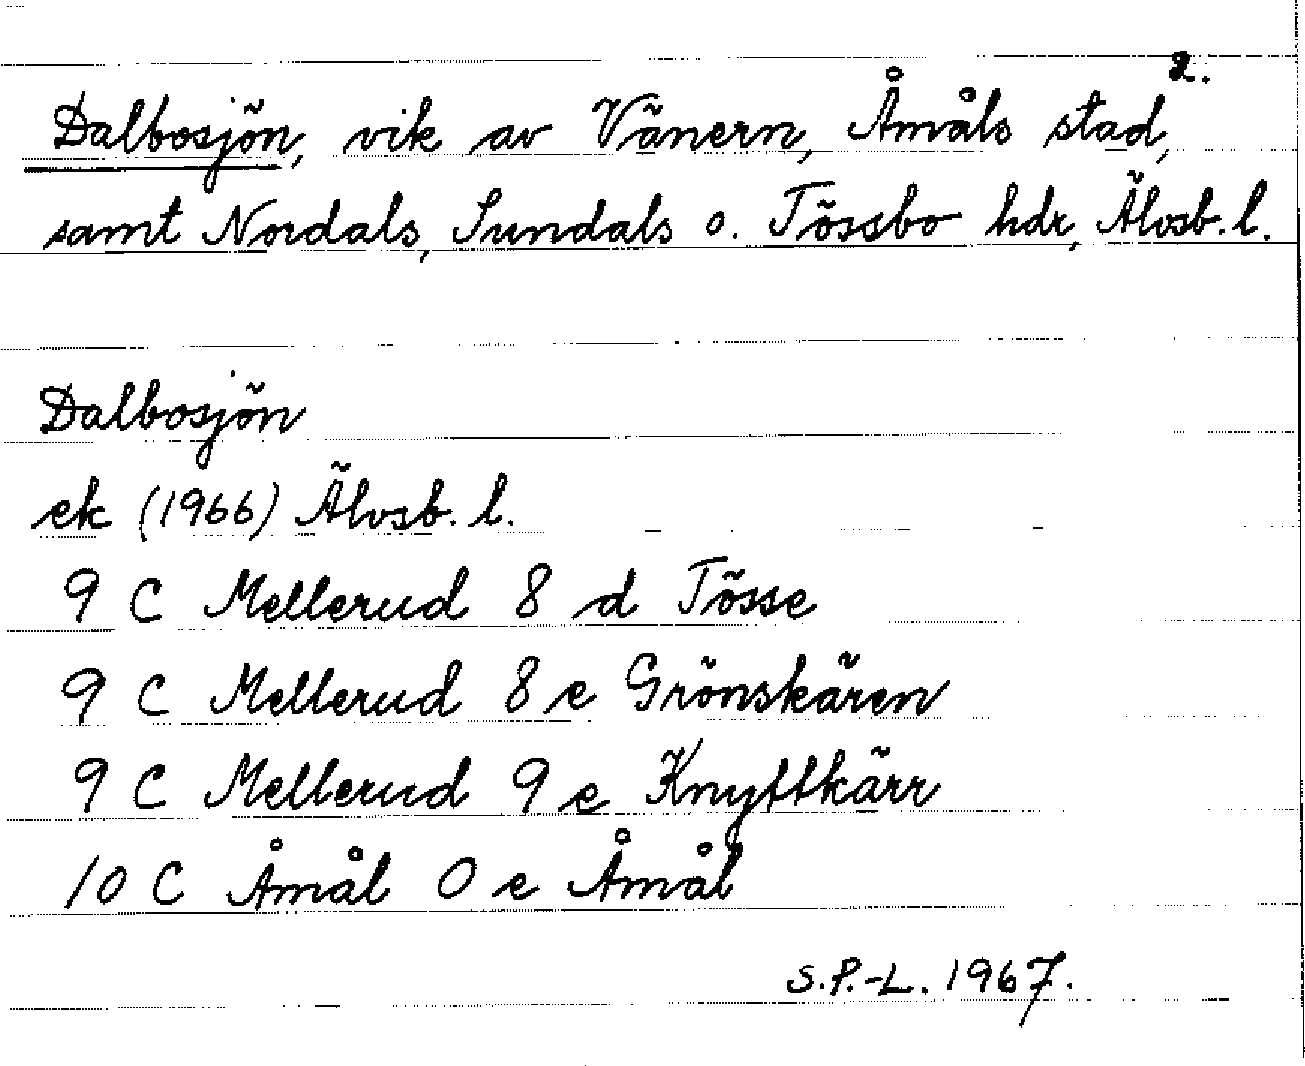 2.
Dalbosjön, vik av Vänern, Åmåls stad,
samt Nordals, Sundals o. Tössbo hdr, Älvsb. l.
Dalbosjön
ek (1966) Älvsb. l.
9 C Mellerud 8 d Tösse
9 C Mellerud 8 e Grönskären
9 C Mellerud 9 e Knyttkärr
10 C Åmål 0 e Åmål
S.P.-L. 1967.